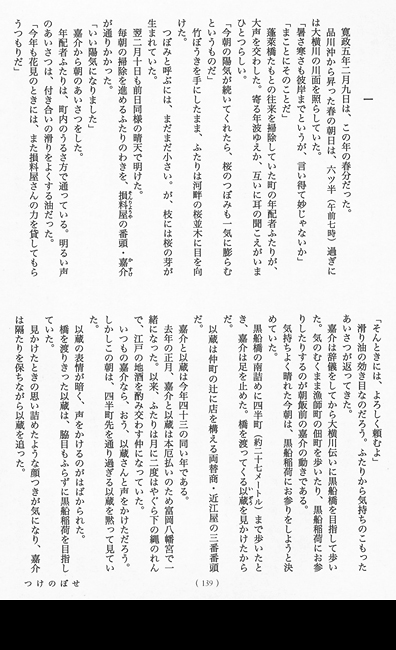 一
　寛政五年二月九日は、この年の春分だった。
　品川沖から昇った春の朝日は、六ツ半（午前七時）過ぎに
は大横川の川面を照らしていた。
「暑さ寒さも彼岸までというが、言い得て妙じゃないか」
「まことにそのことだ」
　蓬萊橋たもとの往来を掃除していた町の年配者ふたりが、
大声を交わした。寄る年波ゆえか、互いに耳の聞こえがいま
ひとつらしい。
「今朝の陽気が続いてくれたら、桜のつぼみも一気に膨らむ
というものだ」
　竹ぼうきを手にしたまま、ふたりは河畔の桜並木に目を向
けた。
　つぼみと呼ぶには、まだまだ小さい。が、枝には桜の芽が
生まれていた。
　翌二月十日も前日同様の晴天で明けた。
　毎朝の掃除を進めるふたりのわきを、損料屋の番頭・嘉介
が通りかかった。
「いい陽気になりました」
　嘉介から朝のあいさつをした。
　年配者ふたりは、町内のうるさ方で通っている。明るい声
のあいさつは、付き合いの滑りをよくする油だった。
「今年も花見のときには、また損料屋さんの力を貸してもら
うつもりだ」
「そんときには、よろしく頼むよ」
　滑り油の効き目なのだろう。ふたりから気持ちのこもった
あいさつが返ってきた。
　嘉介は辞儀をしてから大横川伝いに黒船橋を目指して歩い
た。気のむくまま漁師町の佃町を歩いたり、黒船稲荷にお参
りしたりするのが朝飯前の嘉介の動きである。
　気持ちよく晴れた今朝は、黒船稲荷にお参りをしようと決
めていた。
　黒船橋の南詰めに四半町（約二十七メートル）まで歩いたと
き、嘉介は足を止めた。橋を渡ってくる以蔵を見かけたから
だ。
　以蔵は仲町の辻に店を構える両替商・近江屋の三番番頭
だ。
　嘉介と以蔵は今年四十三の同い年である。
　去年の正月、嘉介と以蔵は本厄払いのため富岡八幡宮で一
緒になった。以来、ふたりは月に二度はやぐら下の縄のれん
で、江戸の地酒を酌み交わす仲になっていた。
　いつもの嘉介なら、おう、以蔵さんと声をかけただろう。
しかしこの朝は、四半町先を通り過ぎる以蔵を黙って見てい
た。
　以蔵の表情が暗く、声をかけるのがはばかられた。
　橋を渡りきった以蔵は、脇目もふらずに黒船稲荷を目指し
ていた。
　見かけたときの思い詰めたような顔つきが気になり、嘉介
は隔たりを保ちながら以蔵を追った。
(139)
つけのぼせ